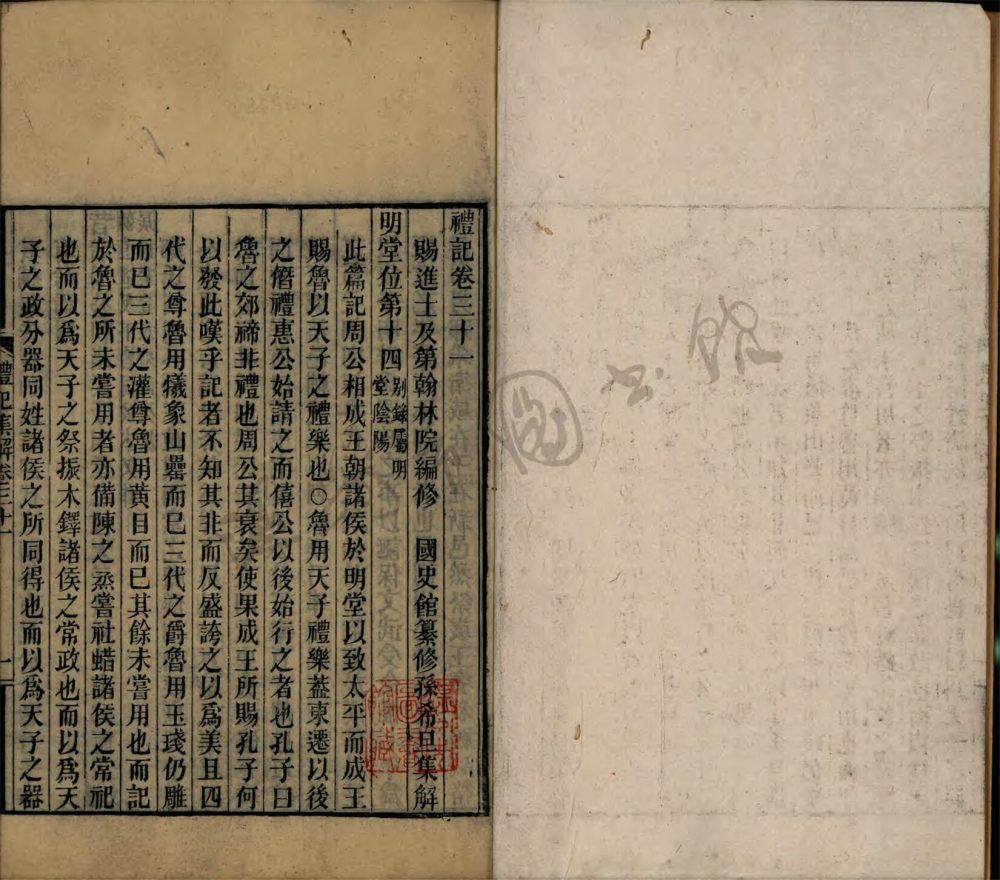 禮記卷三十一
賜進士及第翰林院編修　國史館纂修孫希旦集解
明堂位第十四別錄屬明堂陰陽
此篇記周公相成王朝諸侯於明堂以致太平而成王
賜魯以天子之禮樂也○魯用天子禮樂蓋東遷以後
之僭禮惠公始請之而僖公以後始行之者也孔子曰
魯之郊禘非禮也周公其衰矣使果成王所賜孔子何
以發此嘆乎記者不知其非而反盛誇之以爲美且四
代之尊魯用犧象山罍而已三代之爵魯用玉琖仍雕
而已三代之灌尊魯用黄目而已其餘未嘗用也而記
於魯之所未嘗用者亦備陳之烝嘗社蜡諸侯之常祀
也而以爲天子之祭振木鐸諸侯之常政也而以爲天
子之政分器同姓諸侯之所同得也而以爲天子之器
禮記集解卷三十一
一